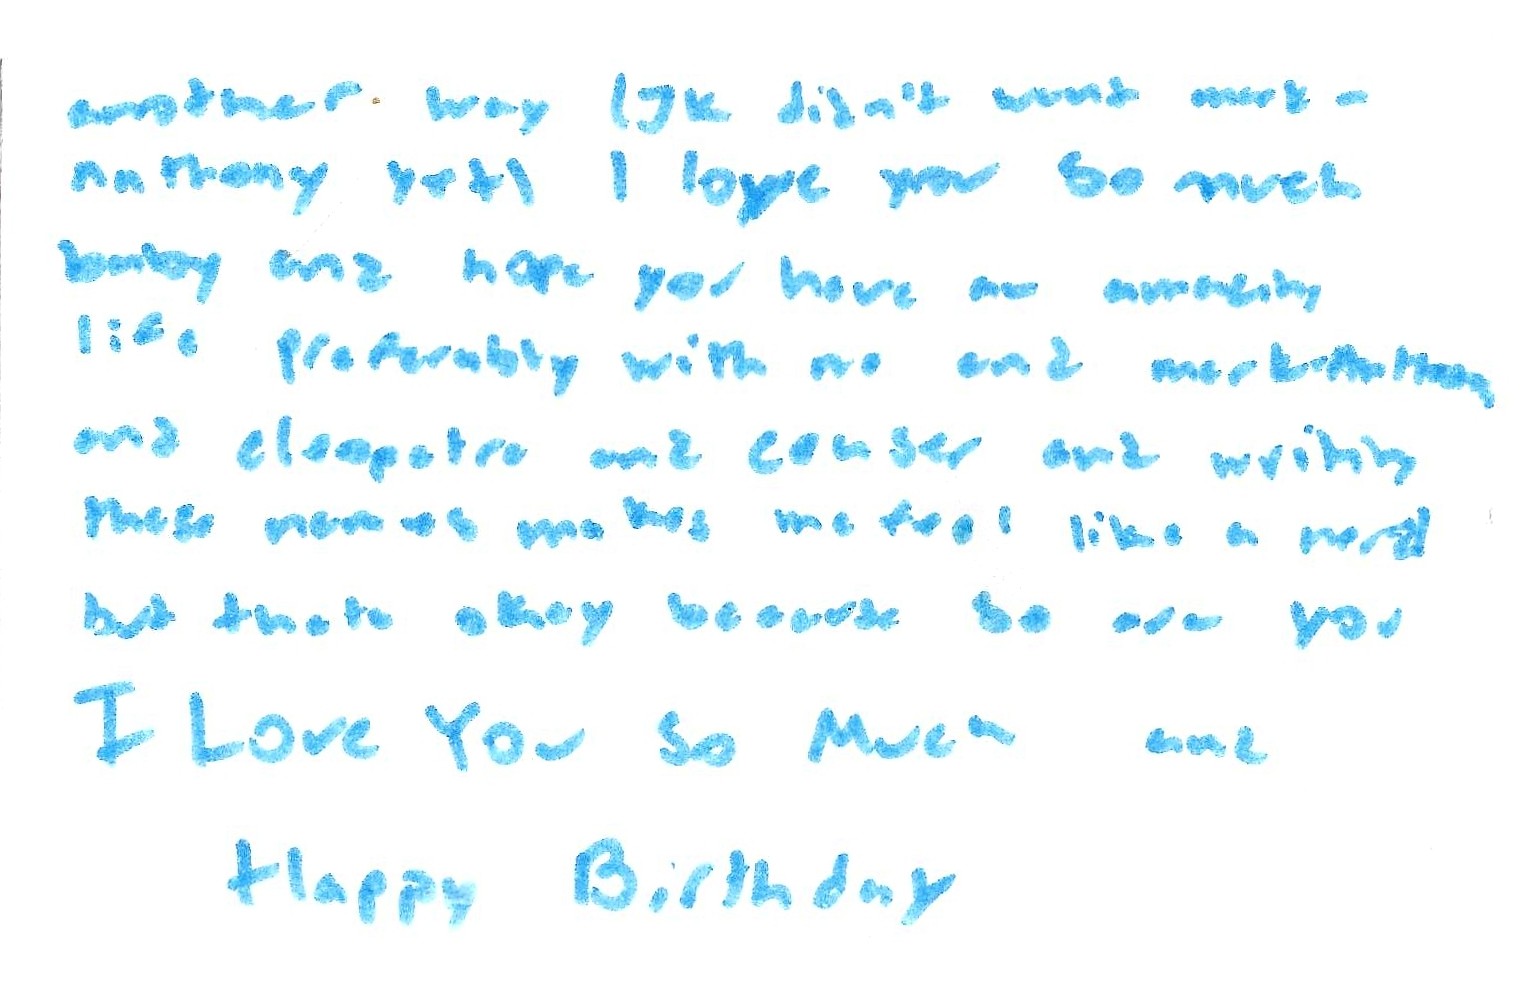 another way (JK didn't want mark-
Anthony yet) I love you so much
baby and hope you have an amazing
life preferably with me and mark-Anthony
and cleopatra and ceaser and writing
these names makes me feel like a nerd
but thats okay because so are you
I Love You So Much and
Happy Birthday